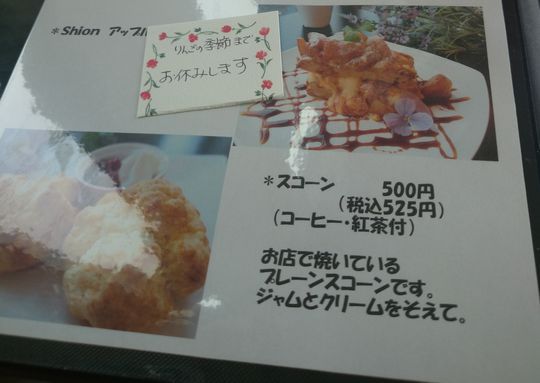 *Shion アップル
りんごの季節まで
お休みします
*スコーン 500円
(税込525円)
(コーヒー・紅茶付)
お店で焼いている
プレーンスコーンです。
ジャムとクリームをそえて。